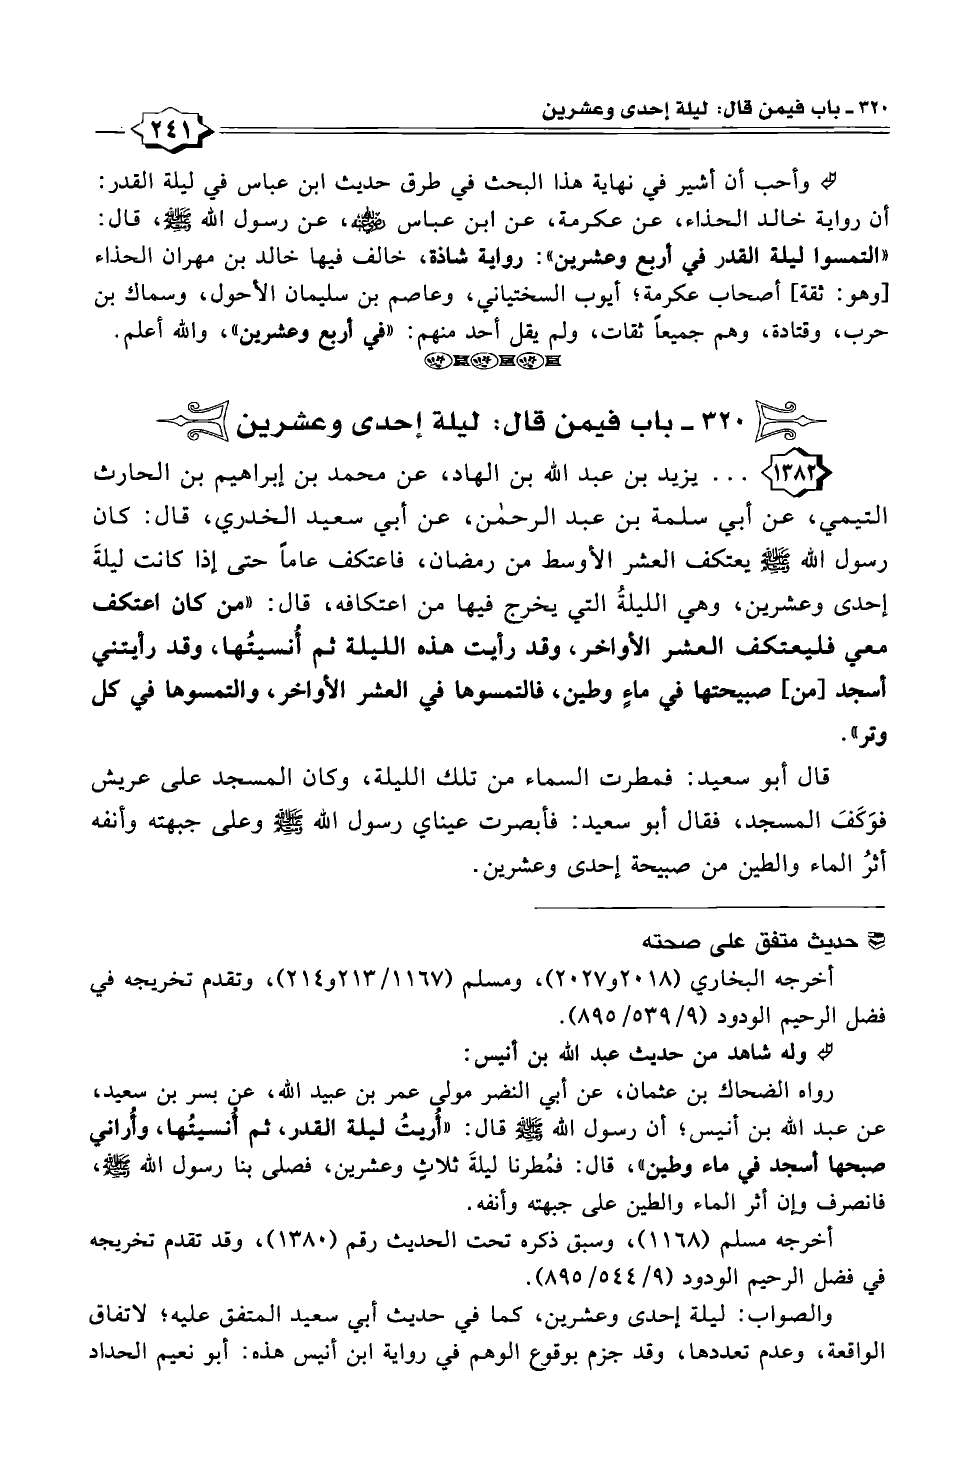 ٣٢٠ - باب فيمن قال: ليلة إحدى وعشرين
٢٤١
وأحب أن أشير في نهاية هذا البحث في طرق حديث ابن عباس في ليلة القدر:
أن رواية خالد الحذاء، عن عكرمة، عن ابن عباس رضي الله عنهما، عن رسول الله ﷺ، قال:
«التمسوا ليلة القدر في أربع وعشرين»: رواية شاذة، خالف فيها خالد بن مهران الحذاء
[وهو: ثقة] أصحاب عكرمة؛ أيوب السختياني، وعاصم بن سليمان الأحول، وسماك بن
حرب، وقتادة، وهم جميعاً ثقات، ولم يقل أحد منهم: «في أربع وعشرين»، والله أعلم.
٣٢٠ - باب فيمن قال: ليلة إحدى وعشرين
١٣٨٢ ... يزيد بن عبد الله بن الهاد، عن محمد بن إبراهيم بن الحارث
التيمي، عن أبي سلمة بن عبد الرحمٰن، عن أبي سعيد الخدري، قال: كان
رسول الله ﷺ يعتكف العشر الأوسط من رمضان، فاعتكف عاماً حتى إذا كانت ليلةَ
إحدى وعشرين، وهي الليلةُ التي يخرج فيها من اعتكافه، قال: «من كان اعتكف
معي فليعتكف العشر الأواخر، وقد رأيت هذه الليلة ثم أُنسيتُها، وقد رأيتني
أسجد [من] صبيحتها في ماءٍ وطين، فالتمسوها في العشر الأواخر، والتمسوها في كل
وتر».
قال أبو سعيد: فمطرت السماء من تلك الليلة، وكان المسجد على عريش
فوَكَفَ المسجد، فقال أبو سعيد: فأبصرت عيناي رسول الله ﷺ وعلى جبهته وأنفه
أثرُ الماء والطين من صبيحة إحدى وعشرين.
حديث متفق على صحته
أخرجه البخاري (٢٠١٨ و٢٠٢٧)، ومسلم (١١٦٧/ ٢١٣ و٢١٤)، وتقدم تخريجه في
فضل الرحيم الودود (٩/ ٥٣٩/ ٨٩٥).
وله شاهد من حديث عبد الله بن أنيس:
رواه الضحاك بن عثمان، عن أبي النضر مولى عمر بن عبيد الله، عن بسر بن سعيد،
عن عبد الله بن أنيس؛ أن رسول الله ﷺ قال: «أُريتُ ليلة القدر، ثم أُنسيتُها، وأُراني
صبحها أسجد في ماء وطين»، قال: فمُطرنا ليلةَ ثلاثٍ وعشرين، فصلى بنا رسول الله ﷺ،
فانصرف وإن أثر الماء والطين على جبهته وأنفه.
أخرجه مسلم (١١٦٨)، وسبق ذكره تحت الحديث رقم (١٣٨٠)، وقد تقدم تخريجه
في فضل الرحيم الودود (٩/ ٥٤٤/ ٨٩٥).
والصواب: ليلة إحدى وعشرين، كما في حديث أبي سعيد المتفق عليه؛ لاتفاق
الواقعة، وعدم تعددها، وقد جزم بوقوع الوهم في رواية ابن أنيس هذه: أبو نعيم الحداد